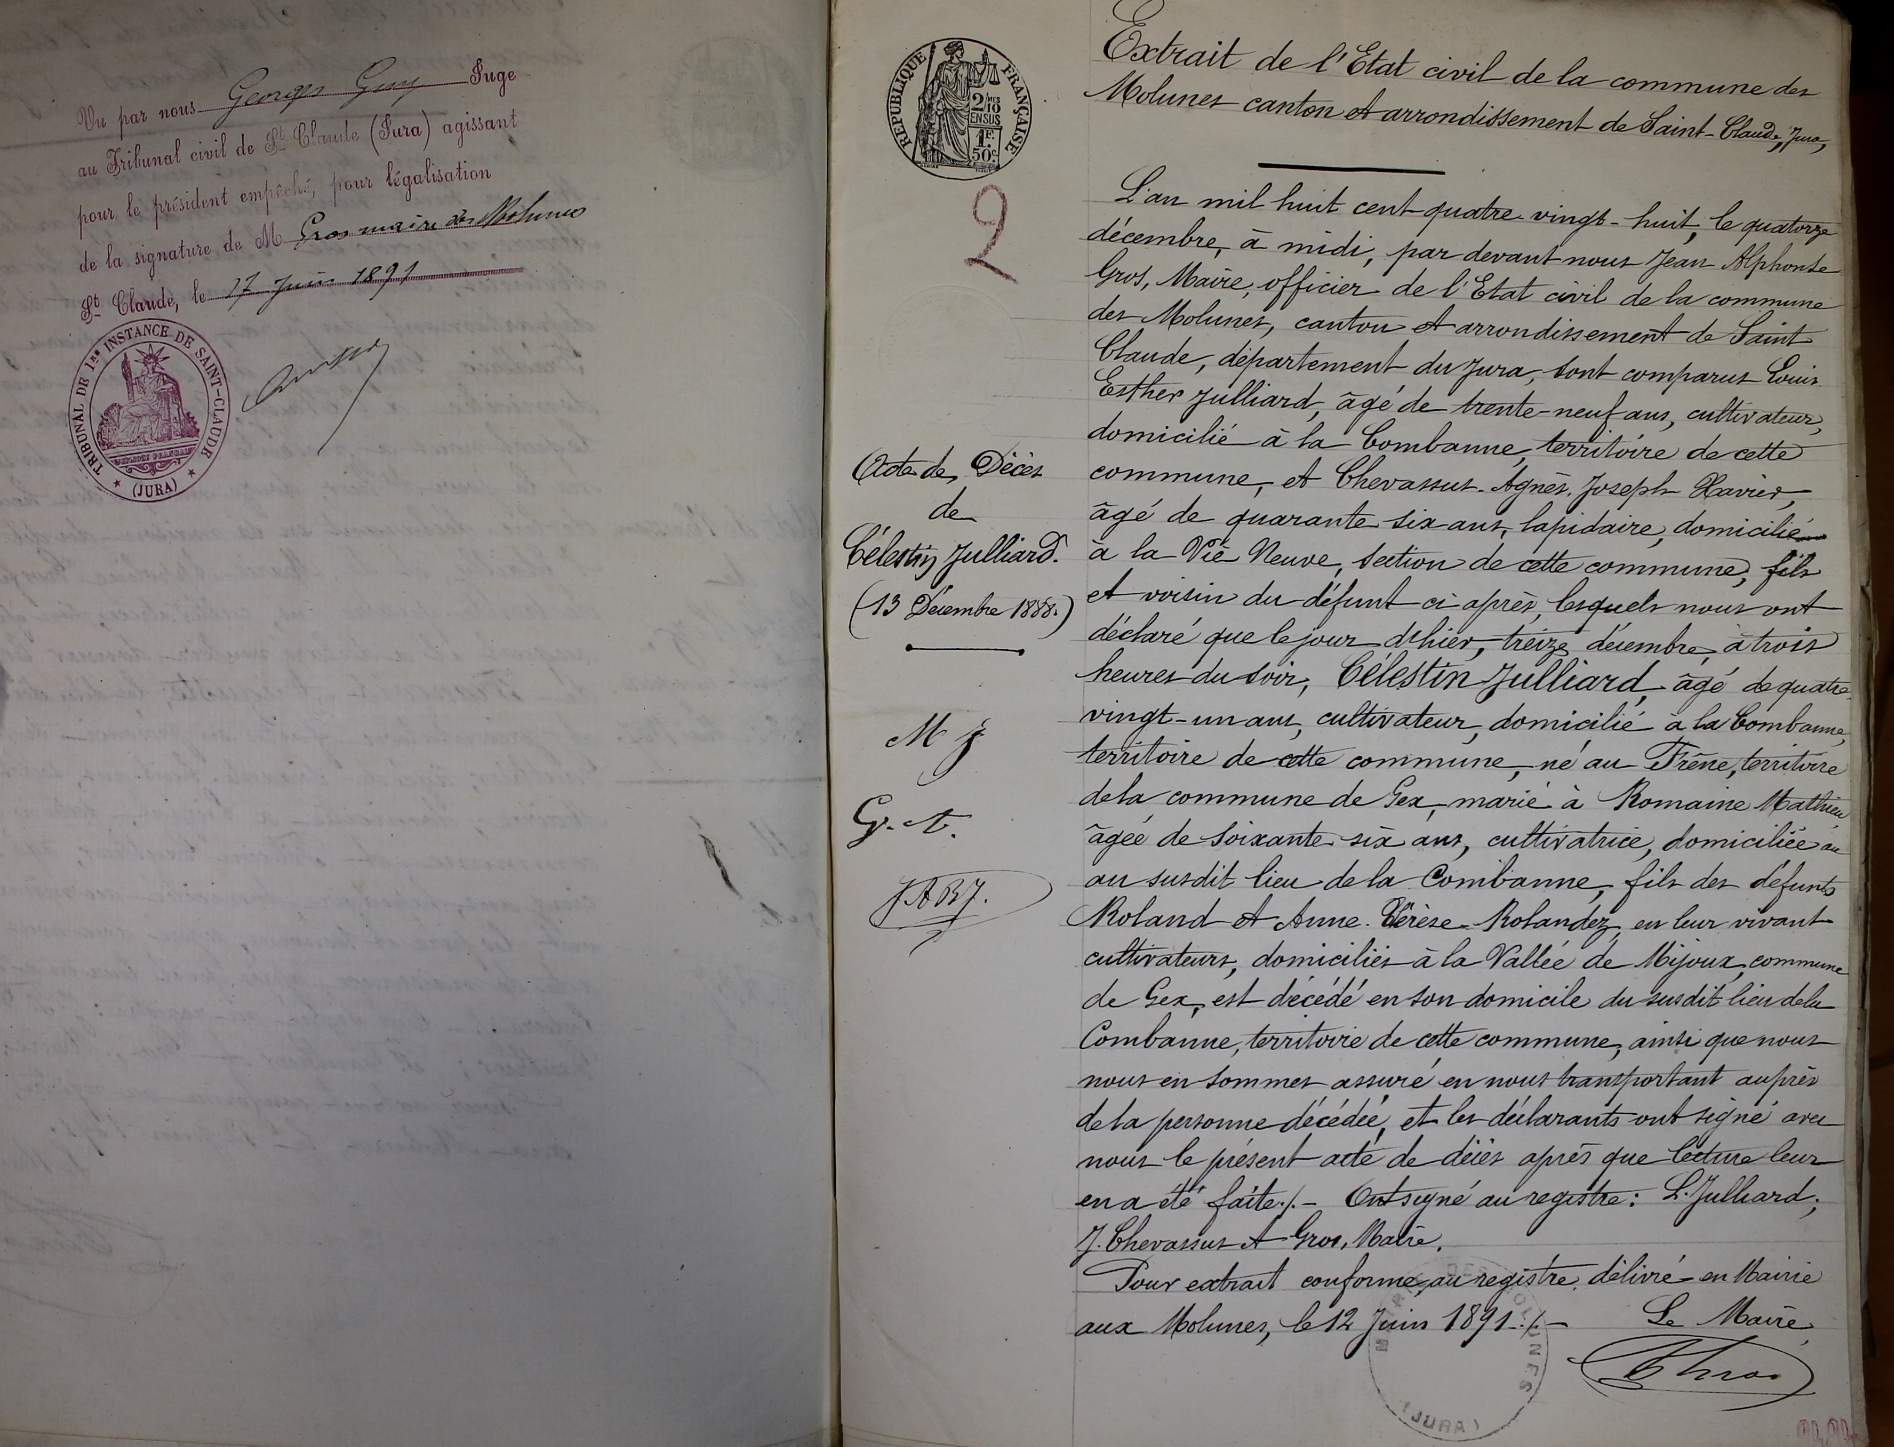 Vu par nous Georges Guy Juge
au Tribunal civil de St Claude (Jura) agissant
pour le président empêché, pour légalisation
de la signature de M Gros maire des Molunes
St Claude, le 17 Juin 1891
TRIBUNAL DE 1RE INSTANCE DE SAINT-CLAUDE
(JURA)
RÉPUBLIQUE FRANÇAISE
2/10
EN SUS
1F.
50c
2
Extrait de l'Etat civil de la commune des
Molunes canton et arrondissement de Saint-Claude, Jura,
L'an mil huit cent quatre-vingt-huit, le quatorze
décembre, à midi, par devant nous Jean Alphonse
Gros, Maire, officier de l'Etat civil de la commune
des Molunes, canton et arrondissement de Saint
Claude, département du Jura, sont comparus Louis
Esther Julliard, âgé de trente-neuf ans, cultivateur,
domicilié à la Combanne, territoire de cette
commune, et Chevassus-Agnès, Joseph Xavier,
âgé de quarante six ans, lapidaire, domicilié
à la Vie Neuve, section de cette commune, fils
et voisin du défunt ci-après, lesquels nous ont
déclaré que le jour d'hier, treize décembre, à trois
heures du soir, Célestin Julliard, âgé de quatre
vingt-un ans, cultivateur, domicilié à la Combanne,
territoire de cette commune, né au Frêne, territoire
de la commune de Gex, marié à Romaine Mathieu
âgée de soixante-six ans, cultivatrice, domiciliée au
au susdit lieu de la Combanne, fils des défunts
Roland et Anne-Térèse Rolandez, en leur vivant
cultivateurs, domiciliés à la Vallée de Mijoux, commune
de Gex, est décédé en son domicile du susdit lieu de la
Combanne, territoire de cette commune, ainsi que nous
nous en sommes assuré en nous transportant auprès
de la personne décédée, et les déclarants ont signé avec
nous le présent acte de décès après que lecture leur
en a été faite./.- Ont signé au registre: L. Julliard;
J. Chevassus et Gros, Maire.
Pour extrait conforme au registre, délivré en Mairie
aux Molunes, le 12 Juin 1891./.-
Le Maire,
(JURA)
Acte de Décès
de
Célestin Julliard.
(13 Décembre 1888.)
M J
G. A.
J A B J.